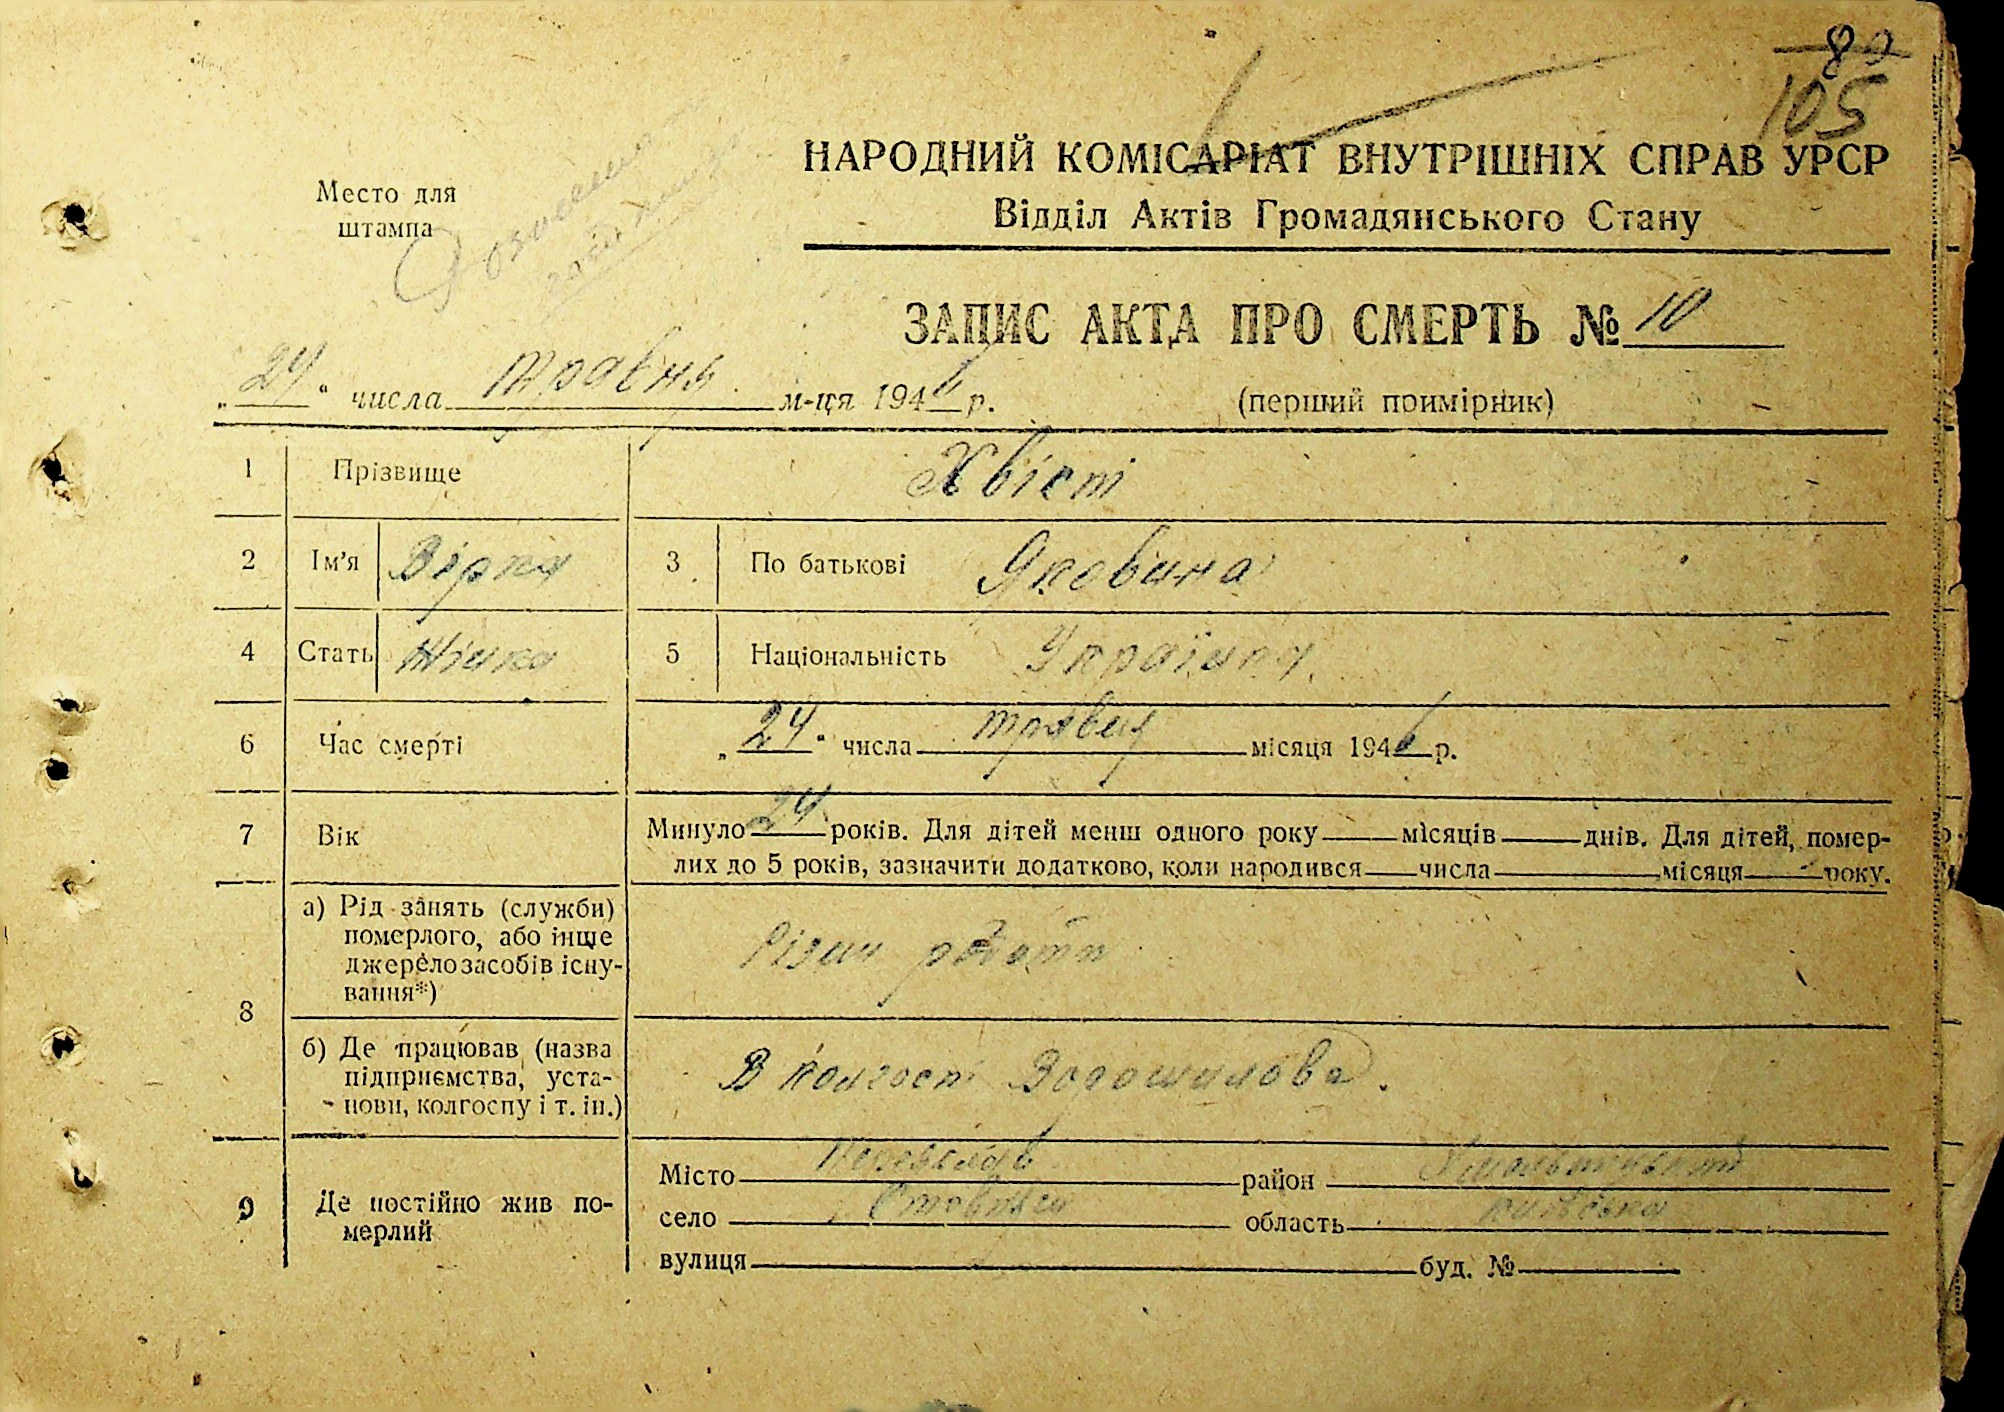 89
105
Место для
штампа
НАРОДНИЙ КОМІСАРІАТ ВНУТРІШНІХ СПРАВ УРСР
Відділ Актів Громадянського Стану
ЗАПИС АКТА ПРО СМЕРТЬ № 10
„24“ числа травня м-ця 1946 р. (перший примірник)
1 Прізвище Хвіст
2 Ім'я Вірка 3 По батькові Яковина
4 Стать Жінка 5 Національність Українка
6 Час смерті „24“ числа травня місяця 1946 р.
7 Вік Минуло 24 років. Для дітей менш одного року місяців днів. Для дітей, помер-
лих до 5 років, зазначити додатково, коли народився числа місяця року.
8 а) Рід занять (служби)
померлого, або інше
джерело засобів існу-
вання*) Різни роботи
б) Де працював (назва
підприємства, уста-
нови, колгоспу і т. ін.) В колгосп Ворошилова.
9 Де постійно жив по-
мерлий
Місто район
село область київська
вулиця буд. №